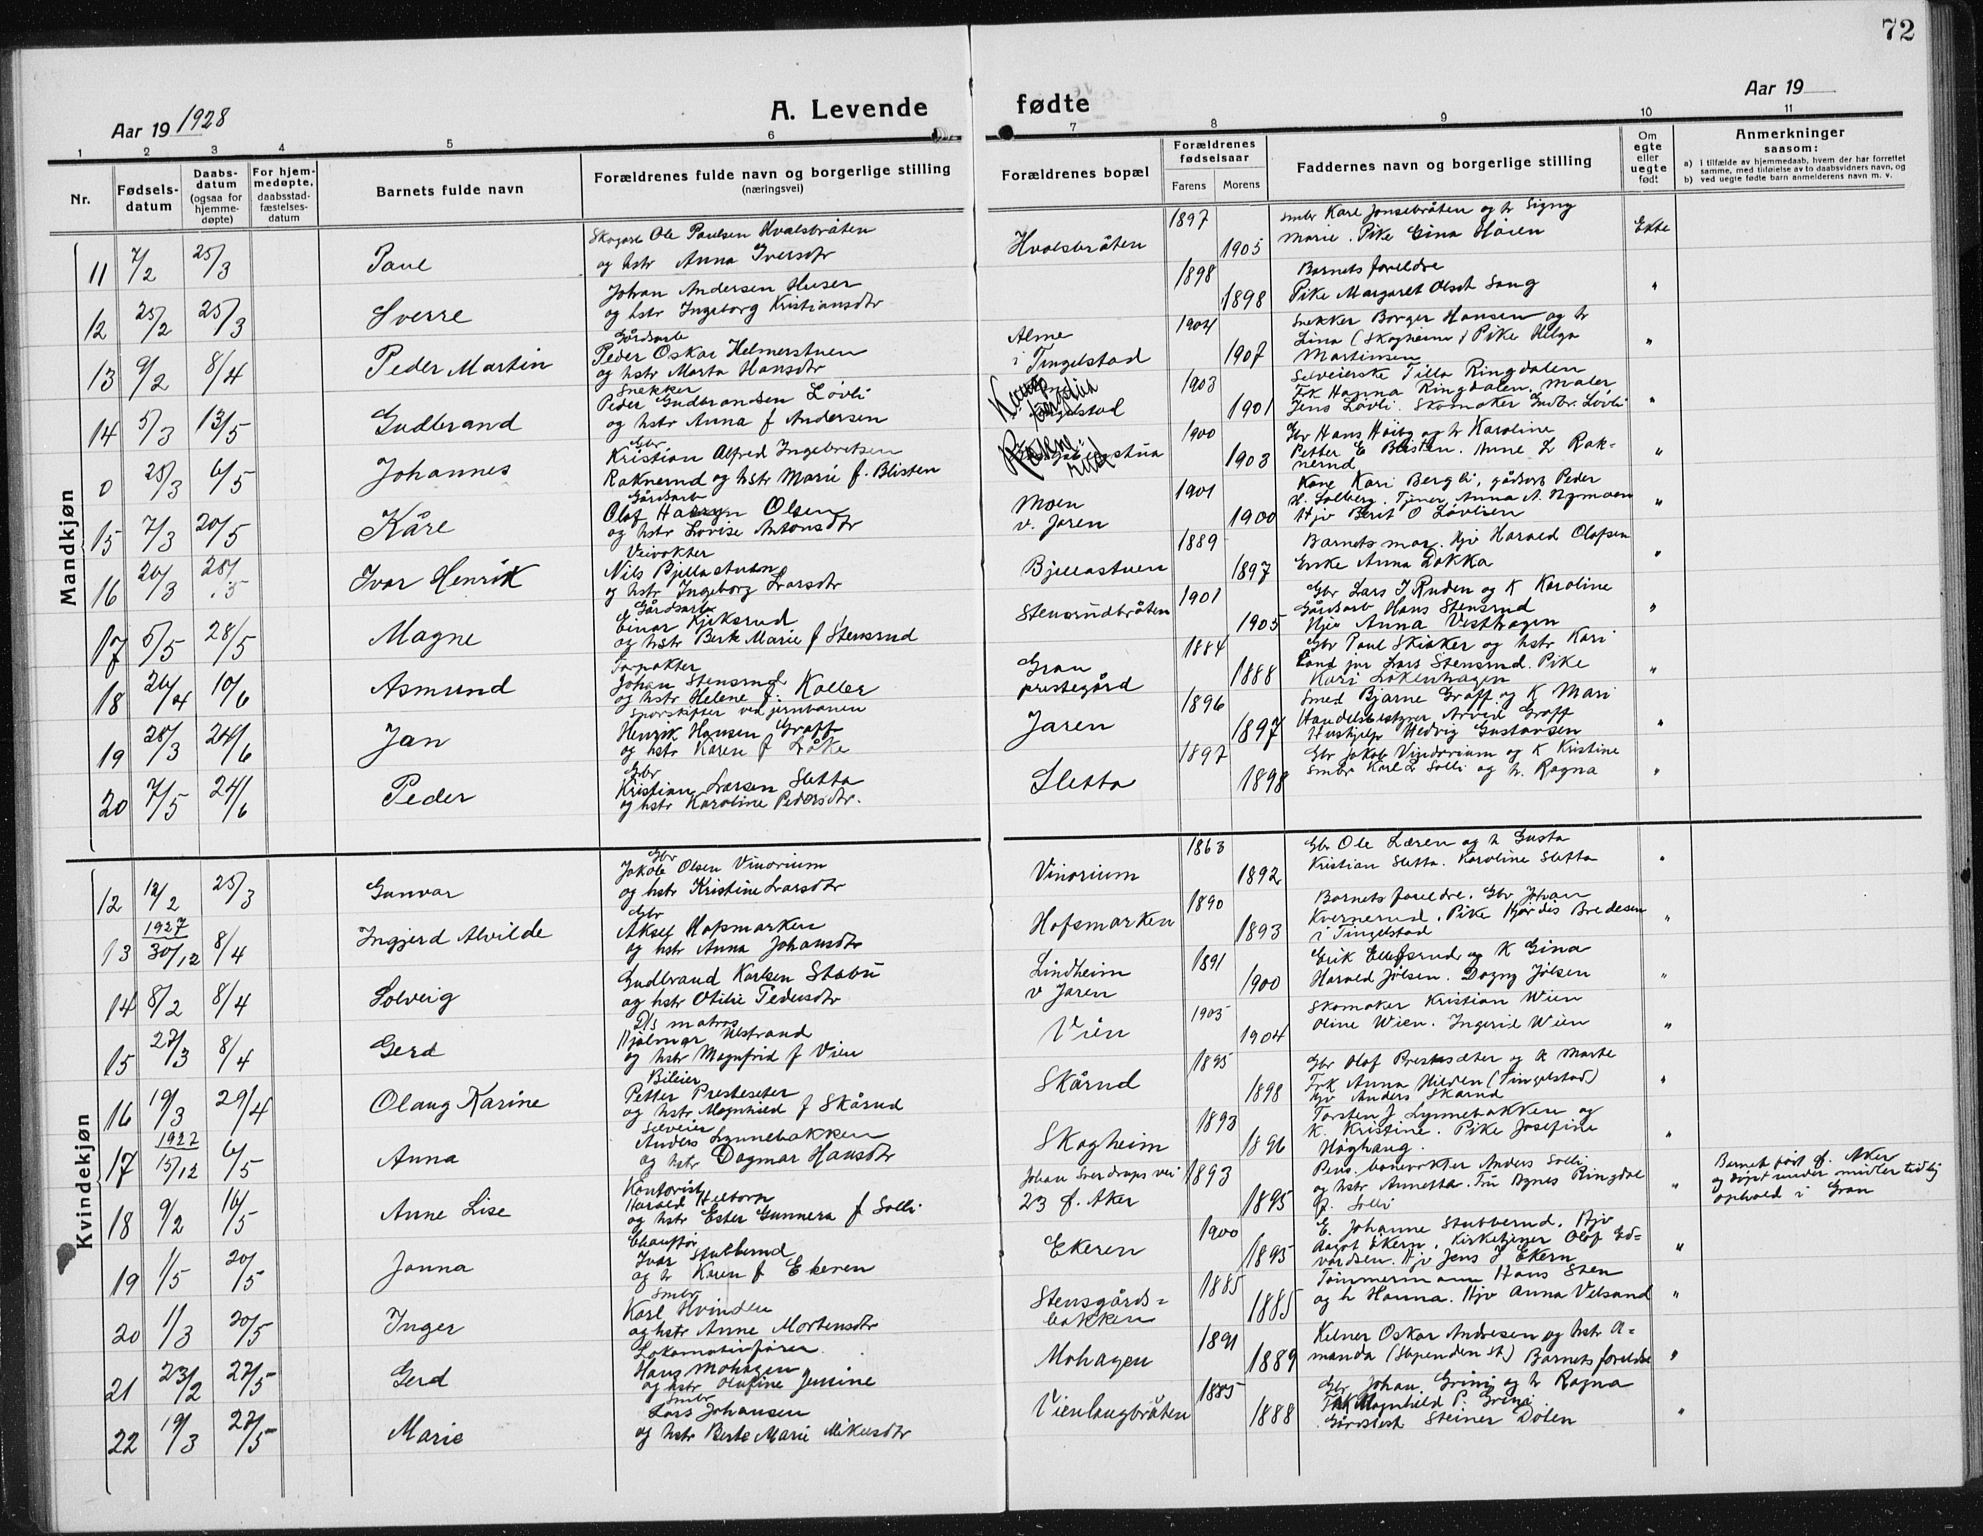 72
Aar 19 1928
A. Levende fødte
Aar 19
1 2 3 4 5 6 7 8 9 10 11
Nr.
Fødsels-datum
Daabs-datum (ogsaa for hjemme-døpte)
For hjem-medøpte, daabsstad-fæstelses-datum
Barnets fulde navn
Forældrenes fulde navn og borgerlige stilling (næringsvei)
Forældrenes bopæl
Forældrenes fødselsaar
Farens Morens
Faddernes navn og borgerlige stilling
Om egte eller uegte født
Anmerkninger saasom:
a) i tilfælde av hjemmedaab, hvem der har forrettet samme, med tilføielse av to daabsvidners navn, og
b) ved uegte fødte barn anmelderens navn m. v.
Mandkjøn
11 7/2 25/3 Paul
Skogarb Ole Paulsen Hvalsbråten
og hstr Anna Iversdtr
Hvalsbråten 1897 1905
Smbr Karl Jonsebråten og h Signy
Marie. Pike Gina Høien
Ekte
12 25/2 25/3 Sverre
Johan Andersen Huser
og hstr Ingeborg Kristiansdtr
1898 1898
Barnets foreldre
Pike Margaret Olsdt Sang
"
13 9/2 8/4 Peder Martin
Gårdsarb
Peder Oskar Helmerstuen
og hstr Marta Hansdtr
Alme
i Tingelstad
1904 1907
Snekker Borger Hansen og h
Lina (Skogheim) Pike Helga
Martinsen
"
14 5/3 13/5 Gudbrand
Snekker
Peder Gudbrandsen Løvli
og hstr Anna f Andersen
1903 1901
Selveierske Tilla Ringdalen
Frk Hanna Ringdalen. Maler
Jens Løvli. Skomaker Gudbr. Løvli
"
0 25/3 6/5 Johannes
Gbr
Kristian Alfred Ingebretsen
Raknerud og hstr Marie f. Blisten
1900 1903
Gbr Hans Høiby og h Karoline
Petter E Blisten. Anne L Rak-
nerud
"
15 7/3 20/5 Kåre
Gårdsarb
Olaf Olsen
og hstr Lovise Antonsdtr
Moen
v. Jaren
1901 1900
Kone Kari Bergli, gårdsarb Peder
H. Solberg. Tjener Anna A. Nymoen
Hjv Berit O Løvlien
"
16 20/3 28/5 Ivar Henrik
Veivokter
Nils Bjellastuen
og hstr Ingeborg Larsdtr
Bjellastuen 1889 1897
Barnets mor. Hjv Harald Olafsen
Enke Anna Dokka
"
17 5/5 28/5 Magne
Gårdsarb
Einar Kjeksrud
og hstr Berte Marie f Stensrud
Stensrudbråten 1901 1905
Gbr Lars I Ruden og K Karoline
Gårdsarb Hans Stensrud
Hjv Anna Vesthagen
"
18 26/4 10/6 Asmund
Forpakter
Johan Stensrud
og hstr Helene f. Koller
Gran
prestegård
1884 1888
Gbr Paul Skiaker og hstr Kari
Cand jur Lars Stensrud. Pike
Kari Lökenhagen
"
19 28/3 24/6 Jan
Sporskifter ved jernbanen
Henrik Hansen Graff
og hstr Karen f Låke
Jaren 1896 1897
Smed Bjarne Graff og K Mari
Handelsbestyrer Arved Graff
Hushjelp Hedvig Gustavsen
"
20 7/5 24/6 Peder
Gbr
Kristian Larsen Sletta
og hstr Karoline Pedersdtr.
Sletta 1897 1898
Gbr Jakob Vinorium og K Kristine
Smbr Karl L Solli og h. Ragna
"
Kvindekjøn
12 12/2 25/3 Gunvor
Gbr
Jakob Olsen Vinorium
og hstr Kristine Larsdtr
Vinorium 1863 1892
Gbr Ole Læren og h Gusta
Kristian Sletta. Karoline Sletta
"
13 1927 30/12 8/4 Ingjerd Alvilde
Gbr
Aksel Hofsmarken
og hstr Anna Johansdtr
Hofsmarken 1890 1893
Barnets foreldre. Gbr Johan
Kvernerud, Pike Hjørdis Bredesen
i Tingelstad
"
14 8/2 8/4 Solveig
Gudbrand Karlsen Stabu
og hstr Otilie Pedersdtr
Lindheim
v Jaren
1891 1900
Erik Ellefsrud og K Gina
Harald Jölsen. Dagny Jölsen
"
15 27/3 8/4 Gerd
D/s matros
Hjalmar Ulstrand
og hstr Magnfrid f Vien
Vien 1903 1904
Skomaker Kristian Wien
Oline Wien. Ingerid Wien
"
16 19/3 29/4 Olaug Karine
Bileier
Petter Presteseter
og hstr Magnhild f Skårud
Skårud 1895 1898
Gbr Olaf Prestesæter og h Marte
Frk Anna Hilden (Tingelstad)
Hjv Anders Skårud
"
17 1927 15/12 6/5 Anna
Selveier
Anders Lynnebakken
og hstr Dagmar Hansdtr
Skogheim 1893 1896
Torsten J Lynnebakken og
K. Kristine. Pike Josefine
Høghaug
"
18 9/2 16/5 Anne Lise
Kontorist
Harald Helborn
og hstr Ester Gunnera f Solli
Johan Sverdrups vei
23 Ø. Aker
1893 1895
Pens. banevokter Anders Solli
og hstr Annetta. Fru Agnes Ringdal
f. Solli
"
Barnet født Ø. Aker
og døpt under midlertidig
ophold i Gran
19 1/5 20/5 Janna
Chauffør
Ivar Stubberud
og h Karen f Ekeren
Ekeren 1900 1895
E. Johanne Stubberud. Hjv
Aagot Ekern, Kirketjener Olaf Ed-
vardsen. Hjv Jens J Ekern
"
20 1/3 20/5 Inger
Smbr
Karl Hvinden
og hstr Anne Mortensdtr
Stensgårds-
bakken
1885 1885
Tømmermann Hans Sten
og h Hanna. Hjv Anna Velsand
"
21 23/2 27/5 Gerd
Lokomotivfører
Hans Mohagen
og hstr Olufine Jensine
Mohagen 1891 1889
Kelner Oskar Andresen og hstr A-
manda (Stpenden st) Barnets foreldre
"
22 19/3 27/5 Marie
Smbr
Lars Johansen
og hstr Berte Marie Mikkelsdtr
Vienlaugbråten 1885 1888
Gbr Johan Grini og h Ragna
Frk Magnhild P. Grini
Gårdbest Steiner Dolen
"